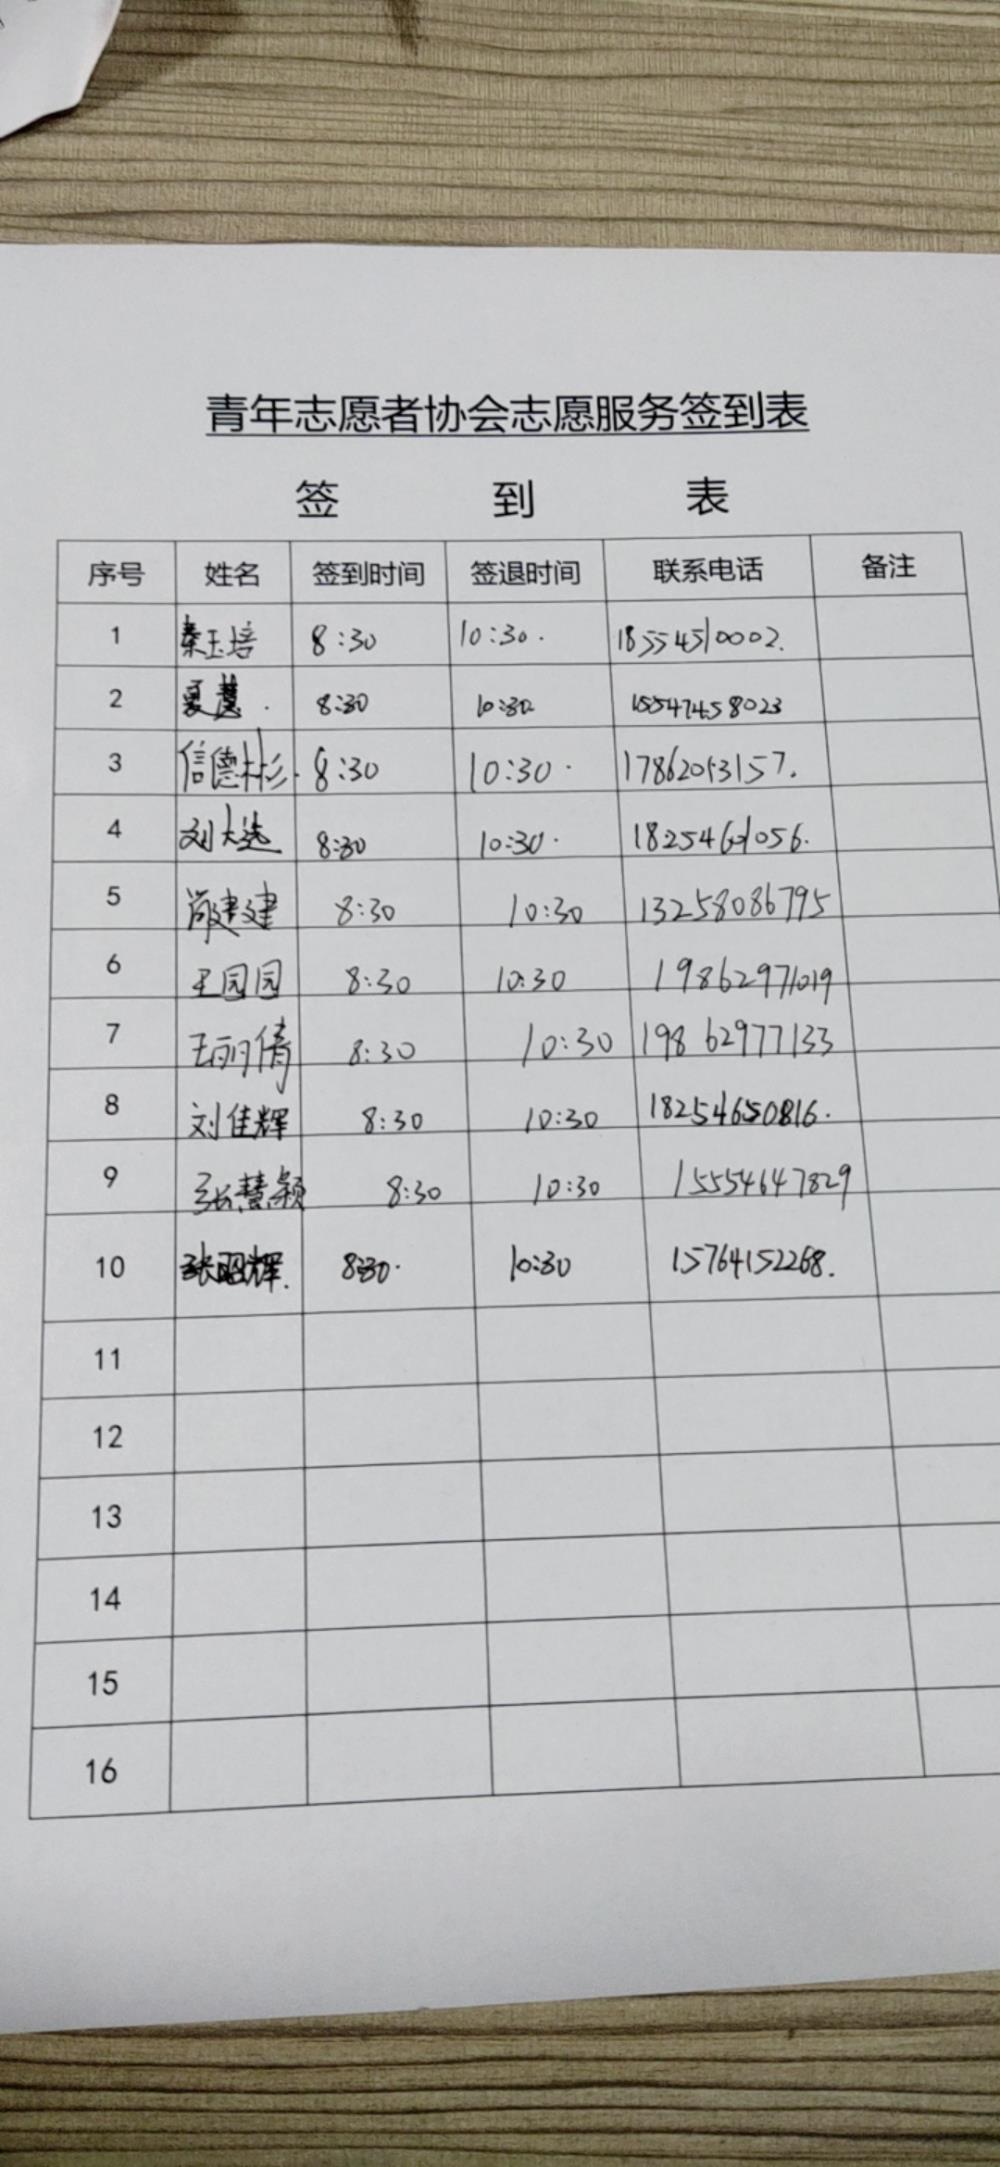 青年志愿者协会志愿服务签到表
签 到 表
序号 姓名 签到时间 签退时间 联系电话 备注
1 秦玉培 8:30 10:30. 18554510002.
2 夏慧. 8:30 10:30 15547458023
3 信德彬彬. 8:30 10:30. 17862053157.
4 刘大选 8:30 10:30. 18254601056.
5 尚建建 8:30 10:30 13258086795
6 王园园 8:30 10:30 19862971019
7 王丽倩 8:30 10:30 19862977133
8 刘佳辉 8:30 10:30 18254650816.
9 张慧颖 8:30 10:30 15554647829
10 张昭辉. 8:30. 10:30 15764152268.
11
12
13
14
15
16